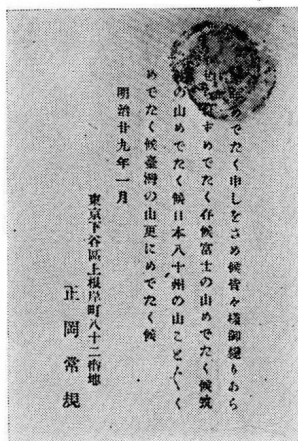 でたく申しをさめ候皆々樣御變りもあら
すめでたく存候富士の山めでたく候筑
の山めでたく候日本八十州の山こと〴〵く
めでたく候臺灣の山更にめでたく候
明治廿九年一月
東京下谷區上根岸町八十二番地
正岡常規